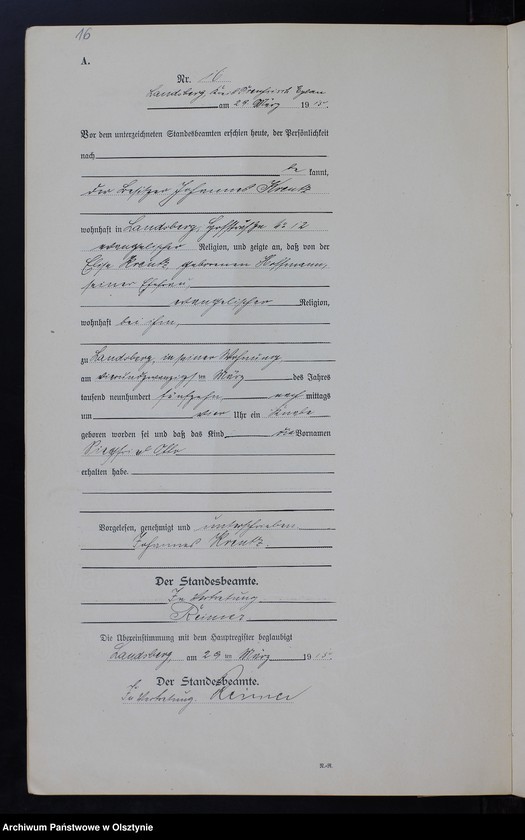 16
A.
Nr. 16
Landsberg, Kreis Preußisch Eylau
am 29 März 1915.
Vor dem unterzeichneten Standesbeamten erschien heute, der Persönlichkeit
nach
be kannt,
der Besitzer Johannes Kreutz
wohnhaft in Landsberg, Hofstraße № 12
evangelischer Religion, und zeigte an, daß von der
Kreutz geborenen Hoffmann,
seiner Ehefrau
evangelischer Religion,
wohnhaft bei ihm,
zu Landsberg, in seiner Wohnung
am vierundzwanzigsten März des Jahres
tausend neunhundert fünfzehn nach mittags
um vier Uhr ein Knabe
geboren worden sei und daß das Kind die Vornamen
Otto
erhalten habe.
Vorgelesen, genehmigt und unterschrieben
Johannes Kreutz.
Der Standesbeamte.
In Vertretung
Reimer
Die Übereinstimmung mit dem Hauptregister beglaubigt
Landsberg am 29 ten März 1915.
Der Standesbeamte.
In Vertretung. Reimer
R.-R.
Archiwum Państwowe w Olsztynie